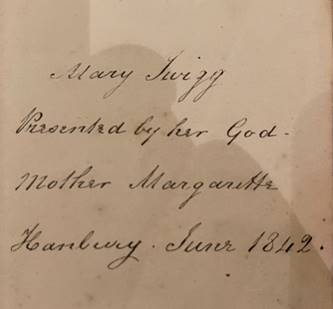 Mary Twigg
Presented by her God-
Mother Margarette
Hanbury. June 1842.